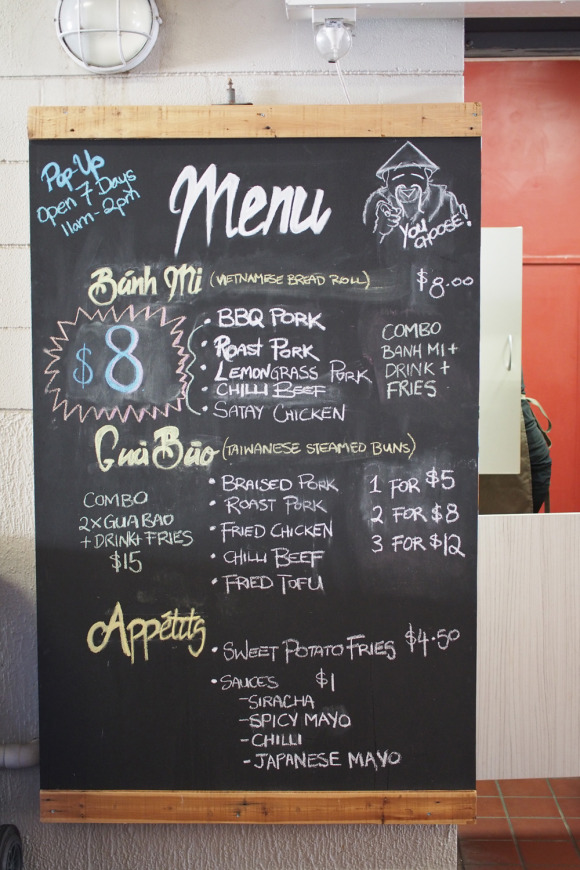 Pop-Up
Open 7 Days
11am-2pm
Menu
YOU CHOOSE!
Bánh Mi (VIETNAMESE BREAD ROLL) $8.00
$8
• BBQ PORK
• ROAST PORK
• LEMONGRASS PORK
• CHILLI BEEF
• SATAY CHICKEN
COMBO
BANH MI +
DRINK +
FRIES
Gua Bao (TAIWANESE STEAMED BUNS)
COMBO
2 X GUA BAO
+ DRINK + FRIES
$15
• BRAISED PORK
• ROAST PORK
• FRIED CHICKEN
• CHILLI BEEF
• FRIED TOFU
1 FOR $5
2 FOR $8
3 FOR $12
Appétits
• SWEET POTATO FRIES $4.50
• SAUCES $1
- SIRACHA
- SPICY MAYO
- CHILLI
- JAPANESE MAYO